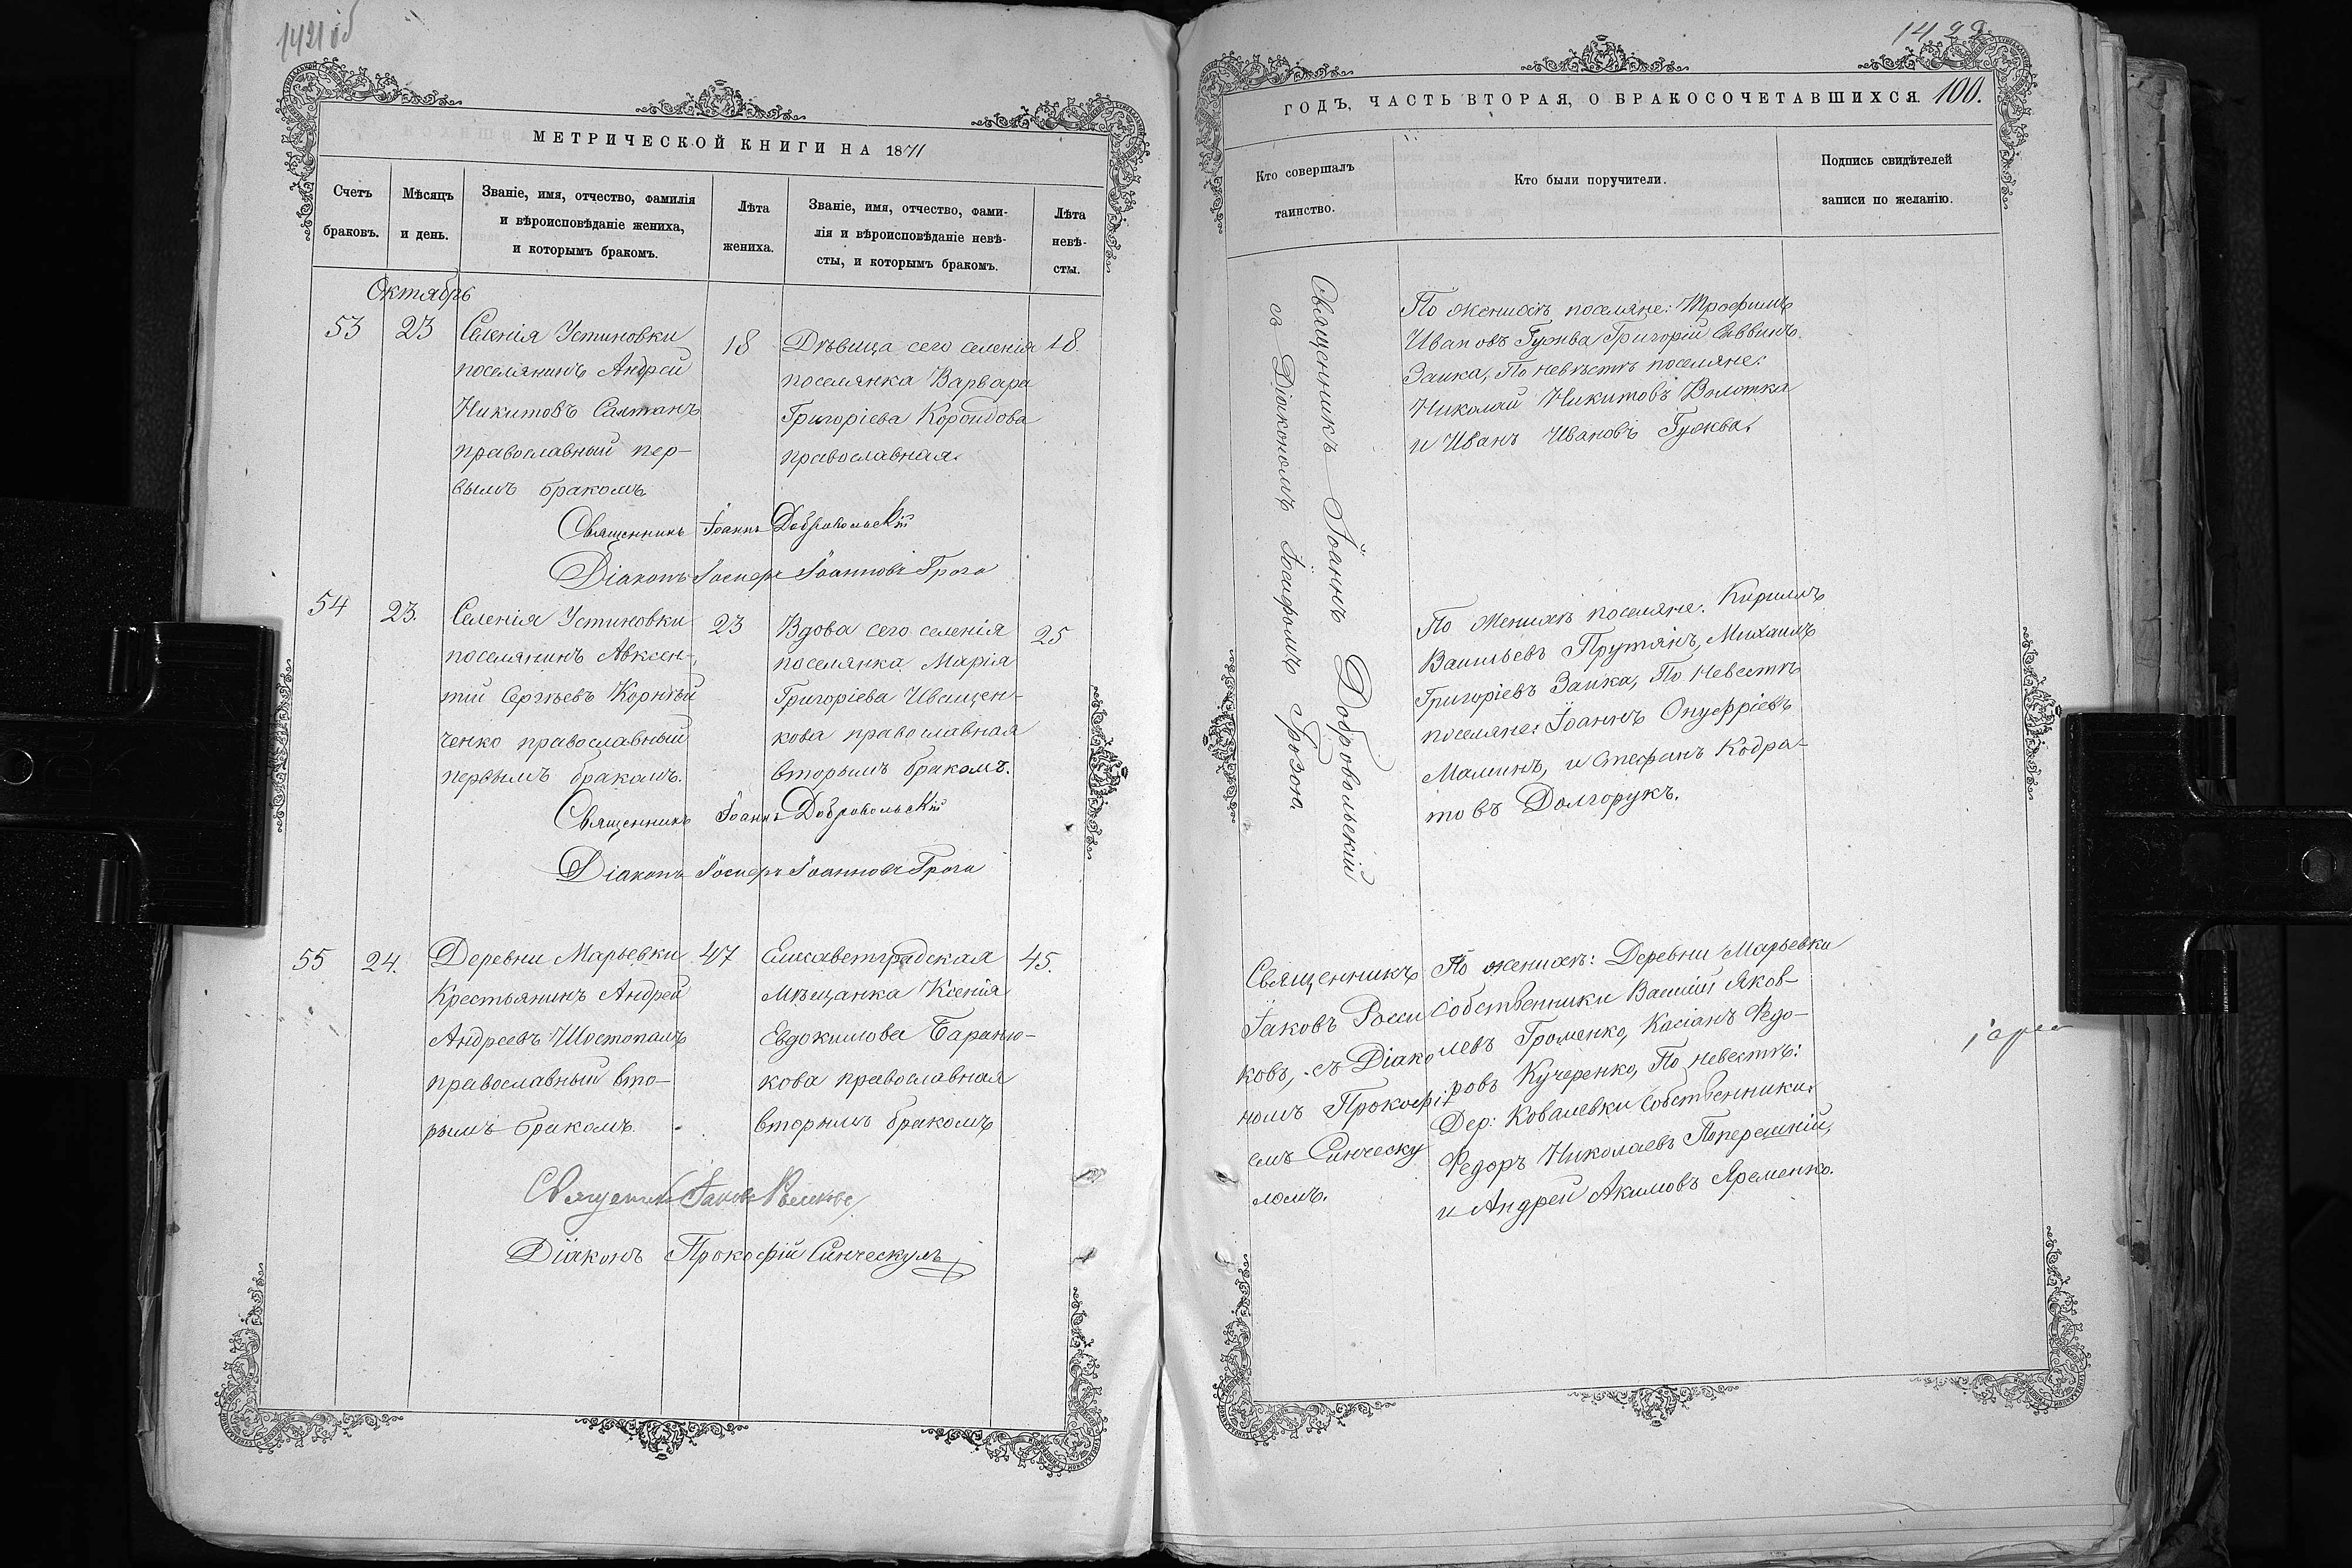 1421 об
МЕТРИЧЕСКОЙ КНИГИ НА 1871
Счетъ
браковъ.
Мѣсяцъ
и день.
Званіе, имя, отчество, фамилія
и вѣроисповѣданіе жениха,
и которымъ бракомъ.
Лѣта
жениха.
Званіе, имя, отчество, фами-
лія и вѣроисповѣданіе невѣ-
сты, и которымъ бракомъ.
Лѣта
невѣ-
сты.
Октябрь
53
23
Селенія Устиновки
поселянинъ Андрей
Никитовъ Салтанъ
православный пер-
вымъ бракомъ
18
Дѣвица сего селенія
поселянка Варвара
Григоріева
православная.
18.
Священникъ Іоаннъ Добровольскій
Діаконъ Іосифъ Іоанновъ
54
23.
Селенія Устиновки
поселянинъ Авксен-
тій Сергѣевъ Корнѣй
ченко православный
первымъ бракомъ.
23
Вдова сего селенія
поселянка Марія
Григоріева Иващен-
кова православная
вторымъ бракомъ.
25
Священникъ Іоаннъ Добровольскій
Діаконъ Іосифъ Іоанновъ
55
24.
Деревни Марьевки
Крестьянинъ Андрей
Андреевъ Шостопалъ
православный вто-
рымъ бракомъ
47
Елисаветградская
Мѣщанка Ксенія
Евдокимова Бараню-
кова православная
вторымъ бракомъ
45.
Священникъ Іаковъ
Діаконъ Прокофій Синческулъ
1422
ГОДЪ, ЧАСТЬ ВТОРАЯ, О БРАКОСОЧЕТАВШИХСЯ 100.
Кто совершалъ
таинство.
Кто были поручители.
Подпись свидѣтелей
записи по желанію.
Священникъ Іоаннъ Добровольскій
съ Діакономъ Іосифомъ
По женихѣ поселяне: Трофимъ
Ивановъ Гужва Григорій Саввинъ
Заика, По невѣстѣ поселяне:
Николай Никитовъ Волотка
и Иванъ Ивановъ Гужва.
По женихѣ поселяне: Кирилъ
Васильевъ Прутянъ, Михаилъ
Григоріевъ Заика, По невестѣ
поселяне: Іоаннъ Онуфріевъ
Малинъ, и Стефанъ Кодра-
товъ Долгорукъ.
Священникъ
Іаковъ Росси
ковъ, съ Діако
номъ Прокофі
емъ Синческу
ломъ.
По женихѣ: Деревни Марьевки
Собственники Василій Яков-
левъ Громенко, Касіанъ Федо-
ровъ Кучеренко, По невестѣ:
Дер: Ковалевки Собственники:
Федоръ Николаевъ
и Андрей Акимовъ Яременко.